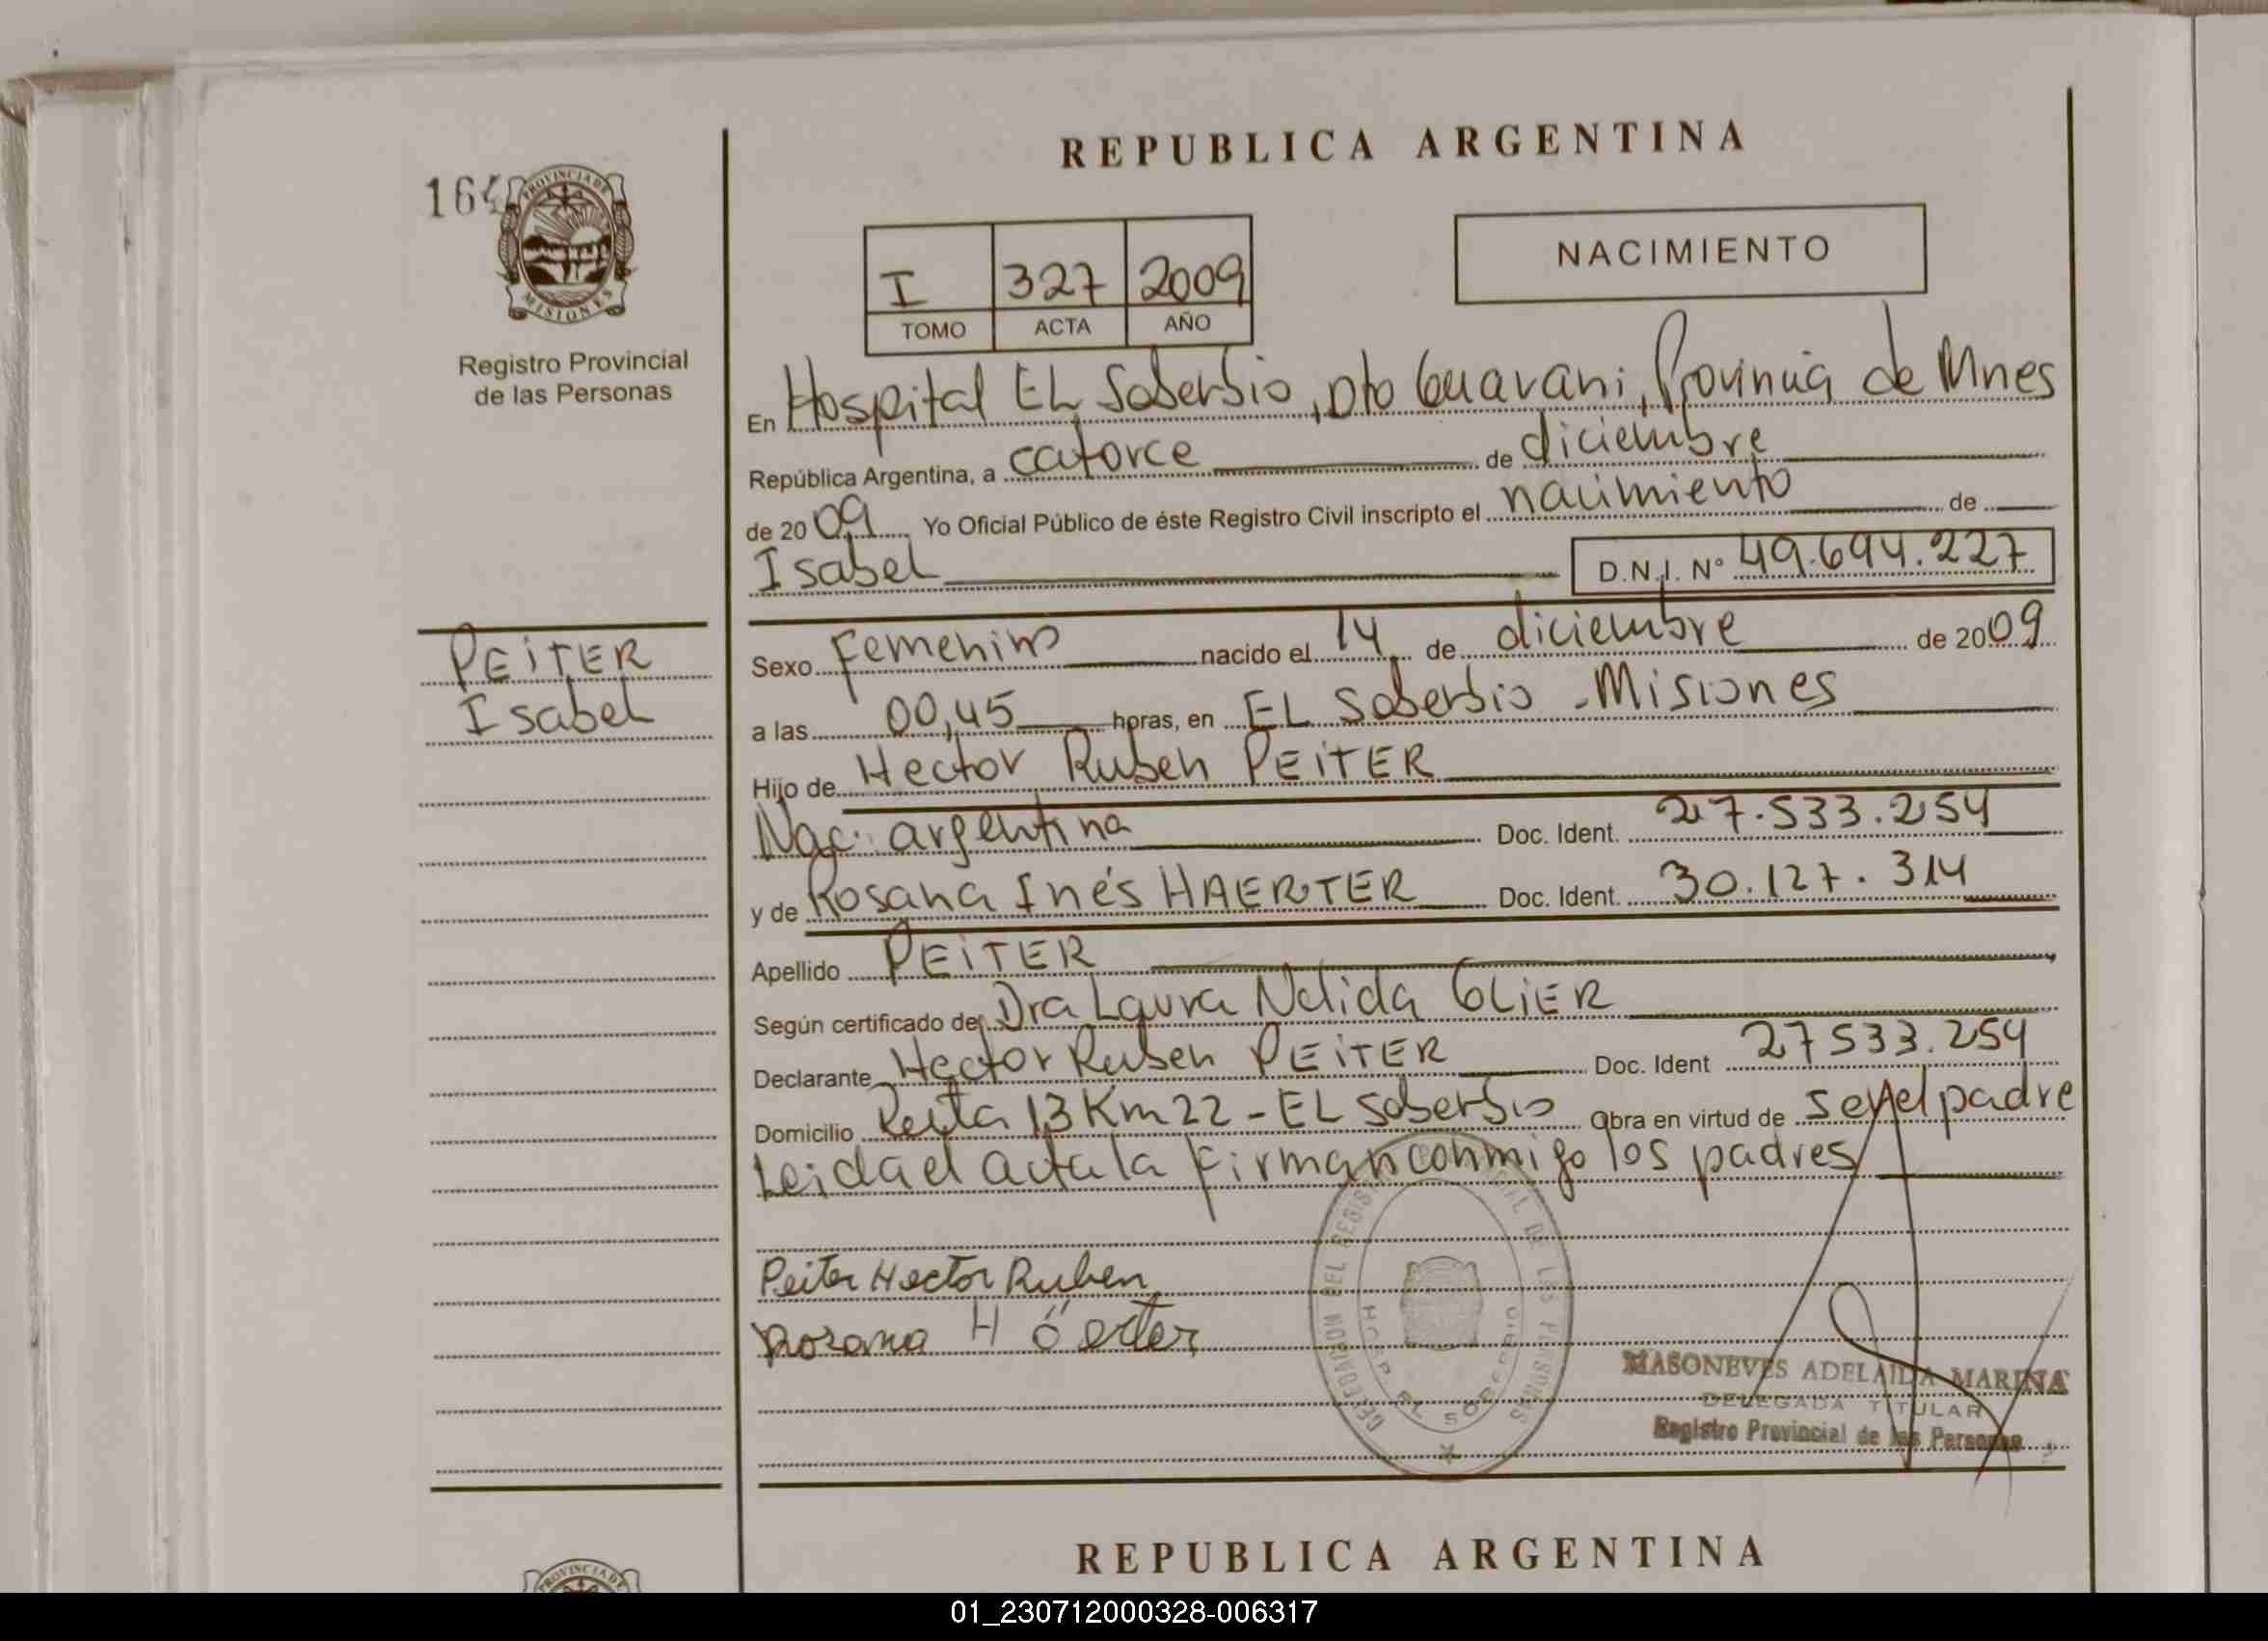 REPUBLICA ARGENTINA
164
PROVINCIA DE
MISIONES
Registro Provincial
de las Personas
I 327 2009
TOMO ACTA AÑO
NACIMIENTO
En Hospital EL Soberbio, Dto Guarani, Provincia de Mnes
República Argentina, a catorce de diciembre
de 20 09 Yo Oficial Público de éste Registro Civil inscripto el nacimiento de
Isabel D.N.I. Nº 49.694.227
PEITER
Isabel
Sexo Femenino nacido el 14 de diciembre de 20 09
a las 00,45 horas, en EL Soberbio - Misiones
Hijo de Hector Ruben PEITER
Nac. argentina Doc. Ident. 27.533.254
y de Rosana Inés HAERTER Doc. Ident. 30.127.314
Apellido PEITER
Según certificado de Dra Laura Nelida GLIER
Declarante Hector Ruben PEITER Doc. Ident 27533.254
Domicilio Ruta 13 Km 22 - EL Soberbio Obra en virtud de ser el padre
Leida el acta la firman conmigo los padres
Peiter Hector Ruben
Rosana Höerter
HOSP. EL SOBERBIO
MASONEVES ADELAIDA MARINA
DELEGADA TITULAR
Registro Provincial de las Personas
REPUBLICA ARGENTINA
PROVINCIA DE
01_230712000328-006317